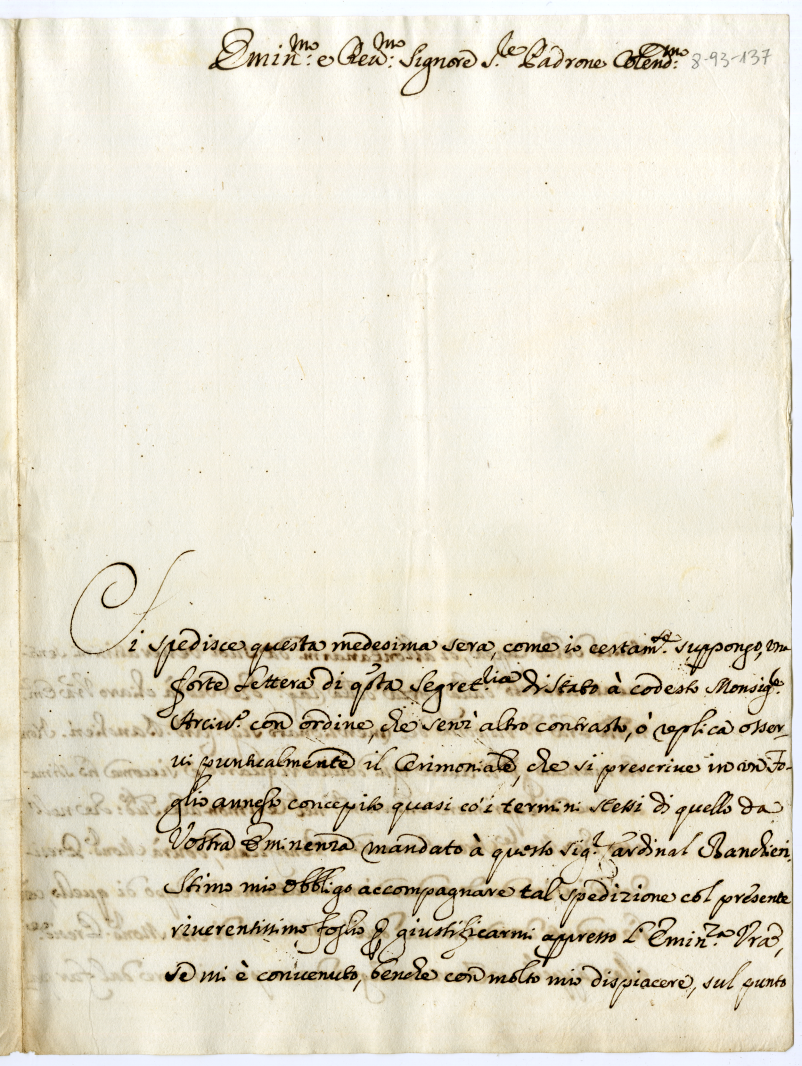 Emin.mo e Rev.mo Signore S.re Padrone Colend.mo 8-93-137
Si spedisce questa medesima sera, come io certam.te suppongo, una
forte Lettera di q.sta Segret.ria di Stato à codesto Monsig.r
Arciv.o con ordine, che senz' altro contrasto, ò replica osser-
vi puntualmente il Cerimoniale, che si prescrive in un Fo-
glio annesso concepito quasi co' i termini stessi di quello da
Vostra Eminenza mandato à questo Sig.r Cardinal Banchieri.
Stimo mio obbligo accompagnare tal spedizione col presente
riverentissimo foglio p giustificarmi appresso l'Emin.za Vra,
se mi è convenuto, benche con molto mio dispiacere, sul punto